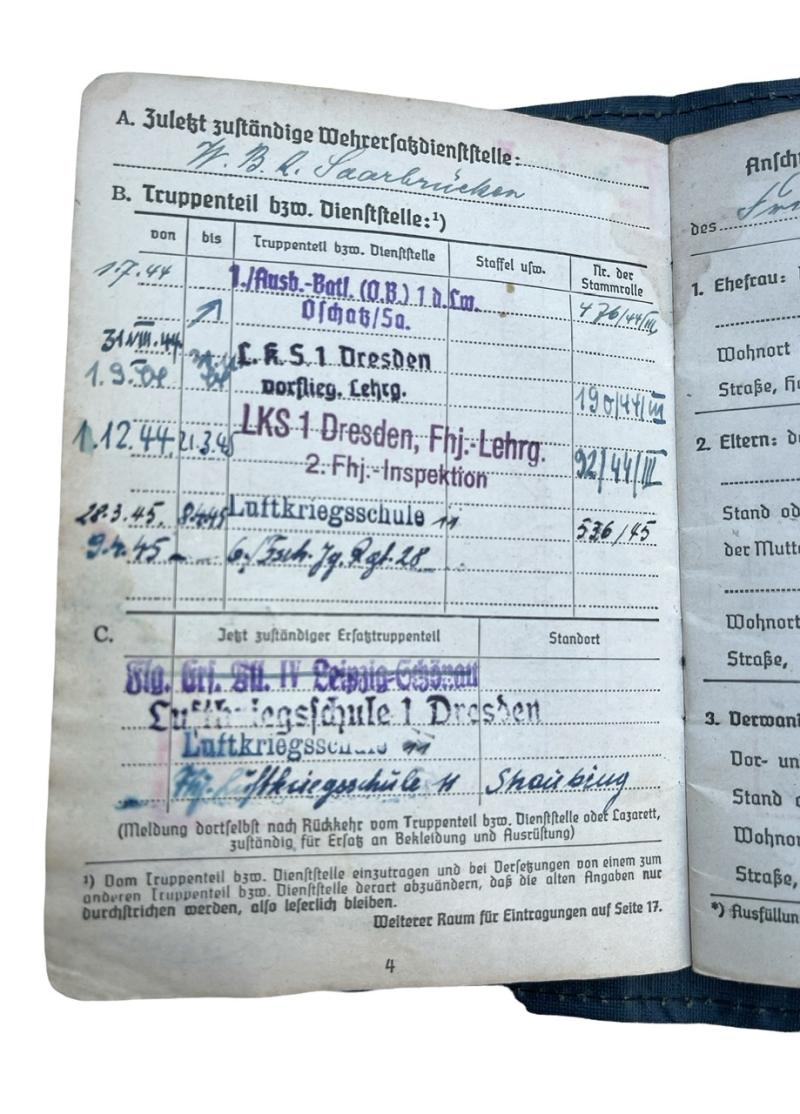 A. Zuletzt zuständige Wehrersatzdienststelle:
W. B. K. Saarbrücken
B. Truppenteil bzw. Dienststelle:¹)
von bis Truppenteil bzw. Dienststelle Staffel usw. Nr. der Stammrolle
1.7.44 1./Ausb.-Batl. (O.B.) 1 d. Lw. 476/44/III
Oschatz/Sa.
31.VIII.44 L.K.S. 1 Dresden
1.9. vorflieg. Lehrg. 190/44/III
1.12.44. 21.3.45 LKS 1 Dresden, Fhj.-Lehrg. 92/44/III
2. Fhj.-Inspektion
28.3.45. 8.4.45 Luftkriegsschule 11 536/45
9.4.45 6./Fsch. Jg. Rgt. 28
C. Jetzt zuständiger Ersatztruppenteil Standort
Flg. Ers. Btl. IV Leipzig-Schönau
Luftkriegsschule 1 Dresden
Luftkriegsschule 11
Luftkriegsschule 11 Straubing
(Meldung dortselbst nach Rückkehr vom Truppenteil bzw. Dienststelle oder Lazarett,
zuständig für Ersatz an Bekleidung und Ausrüstung)
¹) Vom Truppenteil bzw. Dienststelle einzutragen und bei Versetzungen von einem zum
anderen Truppenteil bzw. Dienststelle derart abzuändern, daß die alten Angaben nur
durchstrichen werden, also leserlich bleiben.
Weiterer Raum für Eintragungen auf Seite 17.
4
Anschr
des
1. Ehefrau:
Wohnort
Straße, H
2. Eltern: d
Stand od
der Mutt
Wohnort
Straße,
3. Verwan
Vor- un
Stand
Wohnor
Straße,
*) Ausfüllun